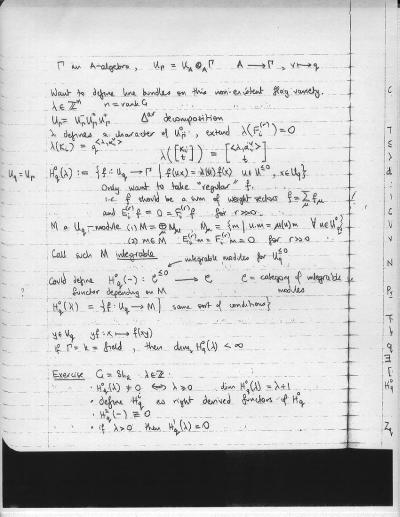 Γ an A-algebra, U_Γ = U_A ⊗_A Γ   A → Γ, v ↦ q
Want to define line bundles on this non-existent flag variety.
λ ∈ ℤⁿ   n = rank G
U_Γ = U_Γ⁻ U_Γ⁰ U_Γ⁺   Δ^ar decomposition
λ defines a character of U_Γ⁰, extend λ(F_i^(r)) = 0
λ(K_i) = q^<λ,α_i^v>   λ([K_i; t]) = [<λ,α_i^v>; t]
U_q = U_Γ   H_q⁰(λ) := {f: U_q → Γ | f(ux) = λ(u) f(x)  u ∈ U^≤0, x ∈ U_q}
Only want to take "regular" f.
i.e. f should be a sum of weight vectors f = Σ_μ f_μ
and E_i^(r) f = 0 = F_i^(r) f for r >> 0.
M a U_q-module (1) M = ⊕_μ M_μ   M_μ = {m | u.m = μ(u)m  ∀ u ∈ U_Γ⁰}
(2) m ∈ M  E_i^(r) m = F_i^(r) m = 0 for r >> 0
Call such M integrable
integrable modules for U_q^≤0
Could define H_q⁰(-): C^≤0 → C   C = category of integrable
functor depending on M   modules
H_q⁰(λ) = {f: U_q → M | same sort of conditions}
y ∈ U_q   yf: x ↦ f(xy)
If Γ = k = field, then dim_k H_q⁰(λ) < ∞
Exercise  G = SL₂  λ ∈ ℤ.
· H_q⁰(λ) ≠ 0 ⟺ λ ≥ 0   dim H_q⁰(λ) = λ+1
· define H_q^i as right derived functors of H_q⁰
· H_q²(-) ≡ 0
· if λ > 0 then H_q¹(λ) = 0